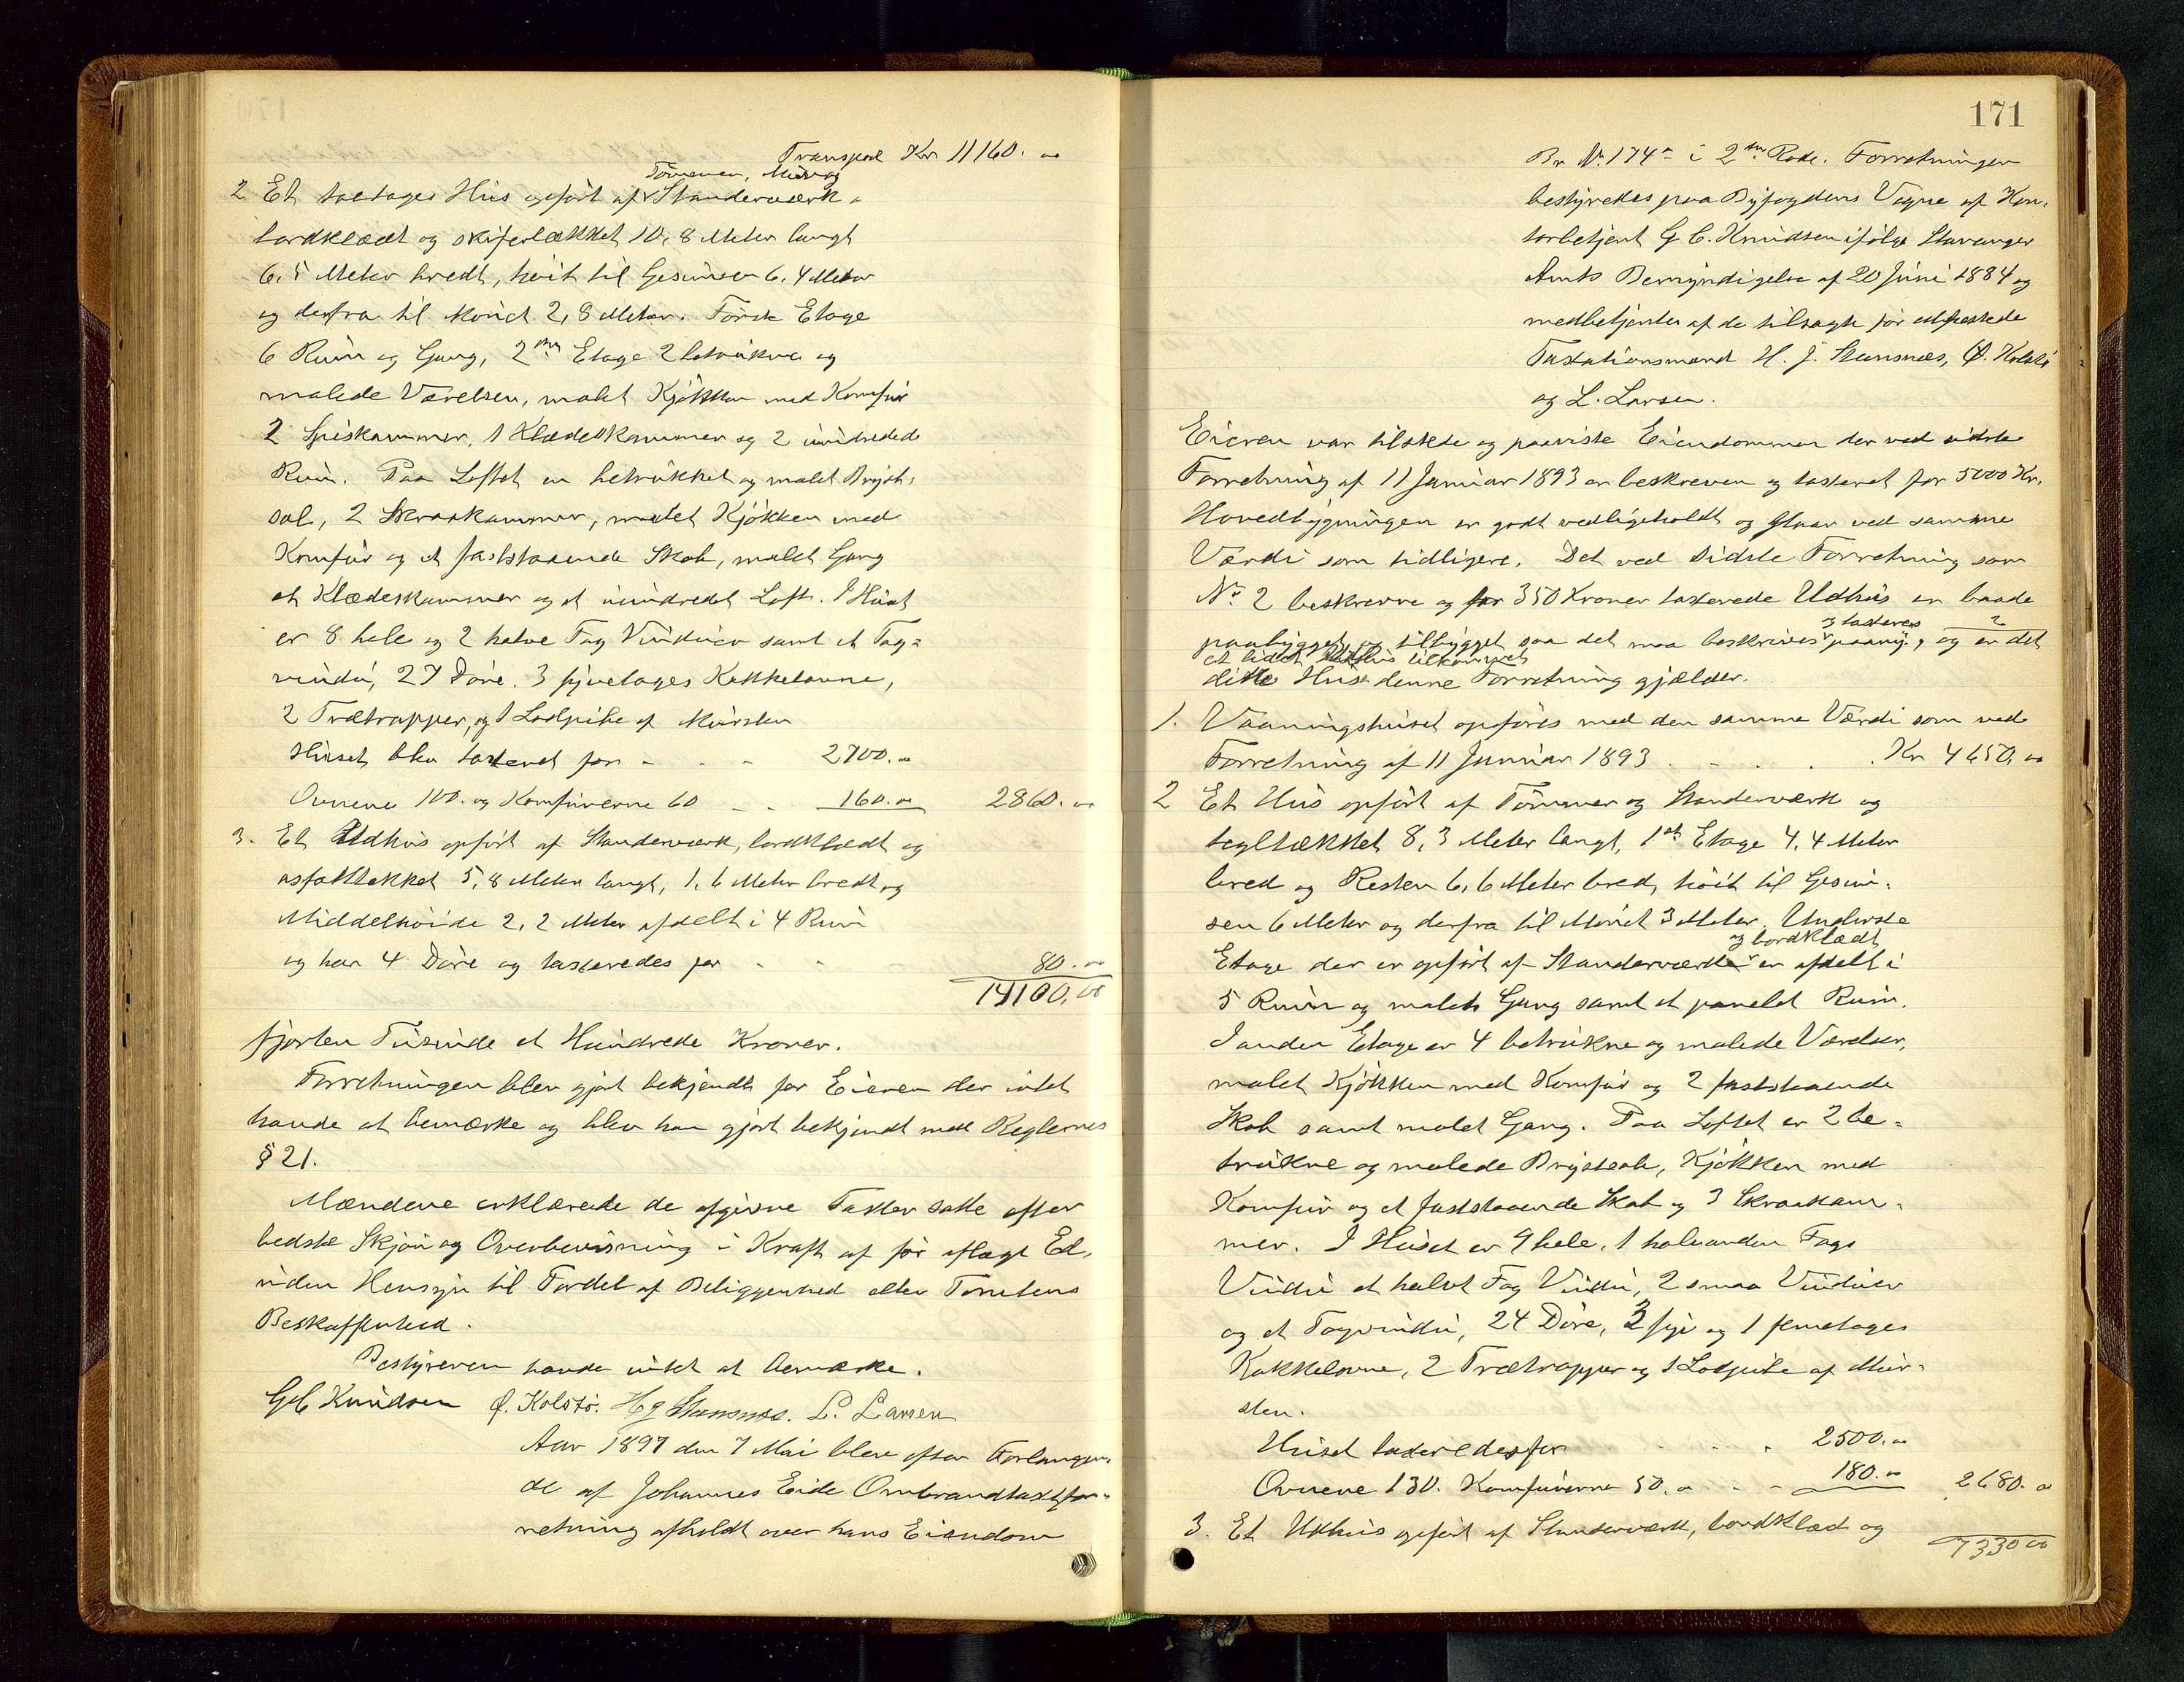 Transport Kr 11160. "
Tømmer, Mur og
2 Et toetages Hus opført af Standerværk
bordklædt og skifertækket 10,8 Meter langt
6,5 Meter bredt, høit til Gesimsen 6,4 Meter
og derfra til Mønet 2,8 Meter. Første Etage
6 Rum og Gang, 2den Etage 2 betrukne og
malede Værelser, malet Kjøkken med Komfur
2 Spiskammer, 1 Klædeskammer og 2 uindredede
Rum. Paa Loftet en betrukket og malet Bryst-
sal, 2 Skraakammer, malet Kjøkken med
Komfur og et faststaaende Skab, malet Gang
et Klædeskammer og et uindredet Loft. I Huset
er 8 hele og 2 halve Fag Vinduer samt et Tag-
vindu, 27 Døre, 3 fireetages Kakkelovne,
2 Trætrapper, og 1 Lodpibe af Mursten
Huset blev taxeret for - - - 2700. "
Ovnene 100. og Komfurerne 60 - - 160. " 2860. "
3. Et Udhus opført af Standerværk, bordklædt og
asfalttækket 5,8 Meter langt, 1,6 Meter bredt og
Middelhøide 2,2 Meter afdelt i 4 Rum
og har 4 Døre og taxeredes for - - - 80. "
14100,00
fjorten Tusinde et Hundrede Kroner.
Forretningen blev gjort bekjendt for Eieren der intet
havde at bemærke og blev han gjort bekjendt med Reglernes
§ 21.
Mændene erklærede de afgivne Taxter satte efter
bedste Skjøn og Overbevisning i Kraft af før aflagt Ed,
uden Hensyn til Fordel af Beliggenhed eller Tomtens
Beskaffenhed.
Bestyreren havde intet at bemærke.
G C Knudsen Ø. Kolstø. H J Stensnæs. L. Larsen
Aar 1897 den 7 Mai blev efter Forlangen-
de af Johannes Eide Ombrandtaxtfor-
retning afholdt over hans Eiendom
171
Br N. 174a i 2den Rode. Forretningen
bestyredes paa Byfogdens Vegne af Kon-
torbetjent G C. Knudsen ifølge Stavanger
Amts Bemyndigelse af 20 Juni 1884 og
medbetjentes af de tilsagte før edfæstede
Taxtationsmænd H. J. Stensnæs, Ø. Kolstø
og L. Larsen.
Eieren var tilstede og paaviste Eiendommen der ved sidste
Forretning af 11 Januar 1893 er beskreven og taxteret for 5000 Kr.
Hovedbygningen er godt vedligeholdt og staar ved samme
Værdi som tidligere. Det ved sidste Forretning som
No 2 beskrevne og for 350 Kroner taxerede Udhus er baade
og taxeres
paabygget og tilbygget saa det maa beskrives paany, og er det
et lidet Udhus tilkommet
dette Hus denne Forretning gjælder.
1. Vaaningshuset opføres med den samme Værdi som ved
Forretning af 11 Januar 1893 . - . . . Kr 4650, "
2 Et Hus opført af Tømmer og Standerværk og
tegltækket 8,3 Meter langt, 1ste Etage 4,4 Meter
bred og Resten 6,6 Meter bred, høit til Gesim-
sen 6 Meter og derfra til Mønet 3 Meter. Underste
og bordklædt
Etage der er opført af Standerværk er afdelt i
5 Rum og malet Gang samt et panelet Rum.
I anden Etage er 4 betrukne og malede Værelser,
malet Kjøkken med Komfur og 2 faststaaende
Skab samt malet Gang. Paa Loftet er 2 be-
trukne og malede Brystsale, Kjøkken med
Komfur og et faststaaende Skab og 3 Skraakam-
mer. I Huset er 9 hele, 1 halvanden Fags
Vindu et halvt Fag Vindu, 2 smaa Vinduer
og et Tagvindu, 24 Døre, 3 fire og 1 femetages
Kakkelovne, 2 Trætrapper og 1 Lodpibe af Mur-
sten.
Huset taxeredes for - - - 2500. "
Ovnene 130. Komfurerne 50. " - - 180. " 2680. "
3. Et Udhus opført af Standerværk, bordklædt og
7330 "